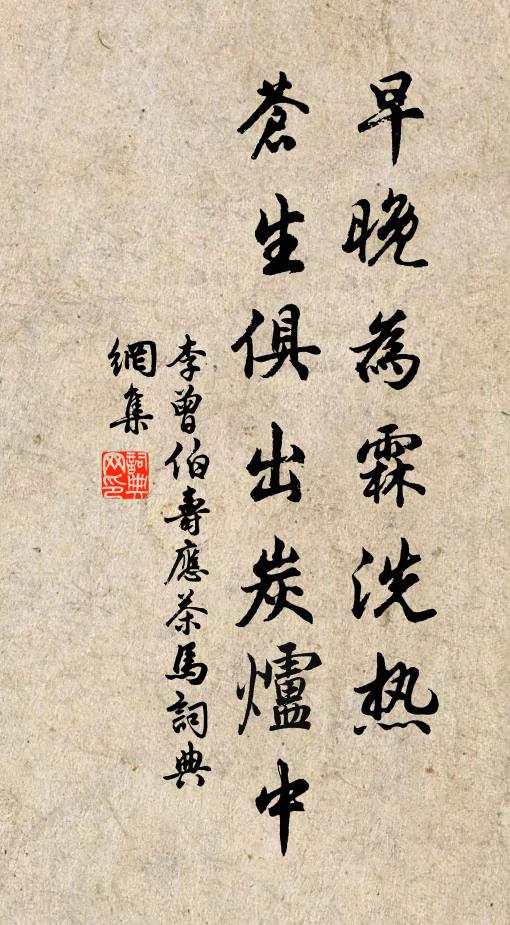 早晚為霖洗热
蒼生俱出炭爐中
李曾伯壽應茶馬詞典
網集
詞典網印